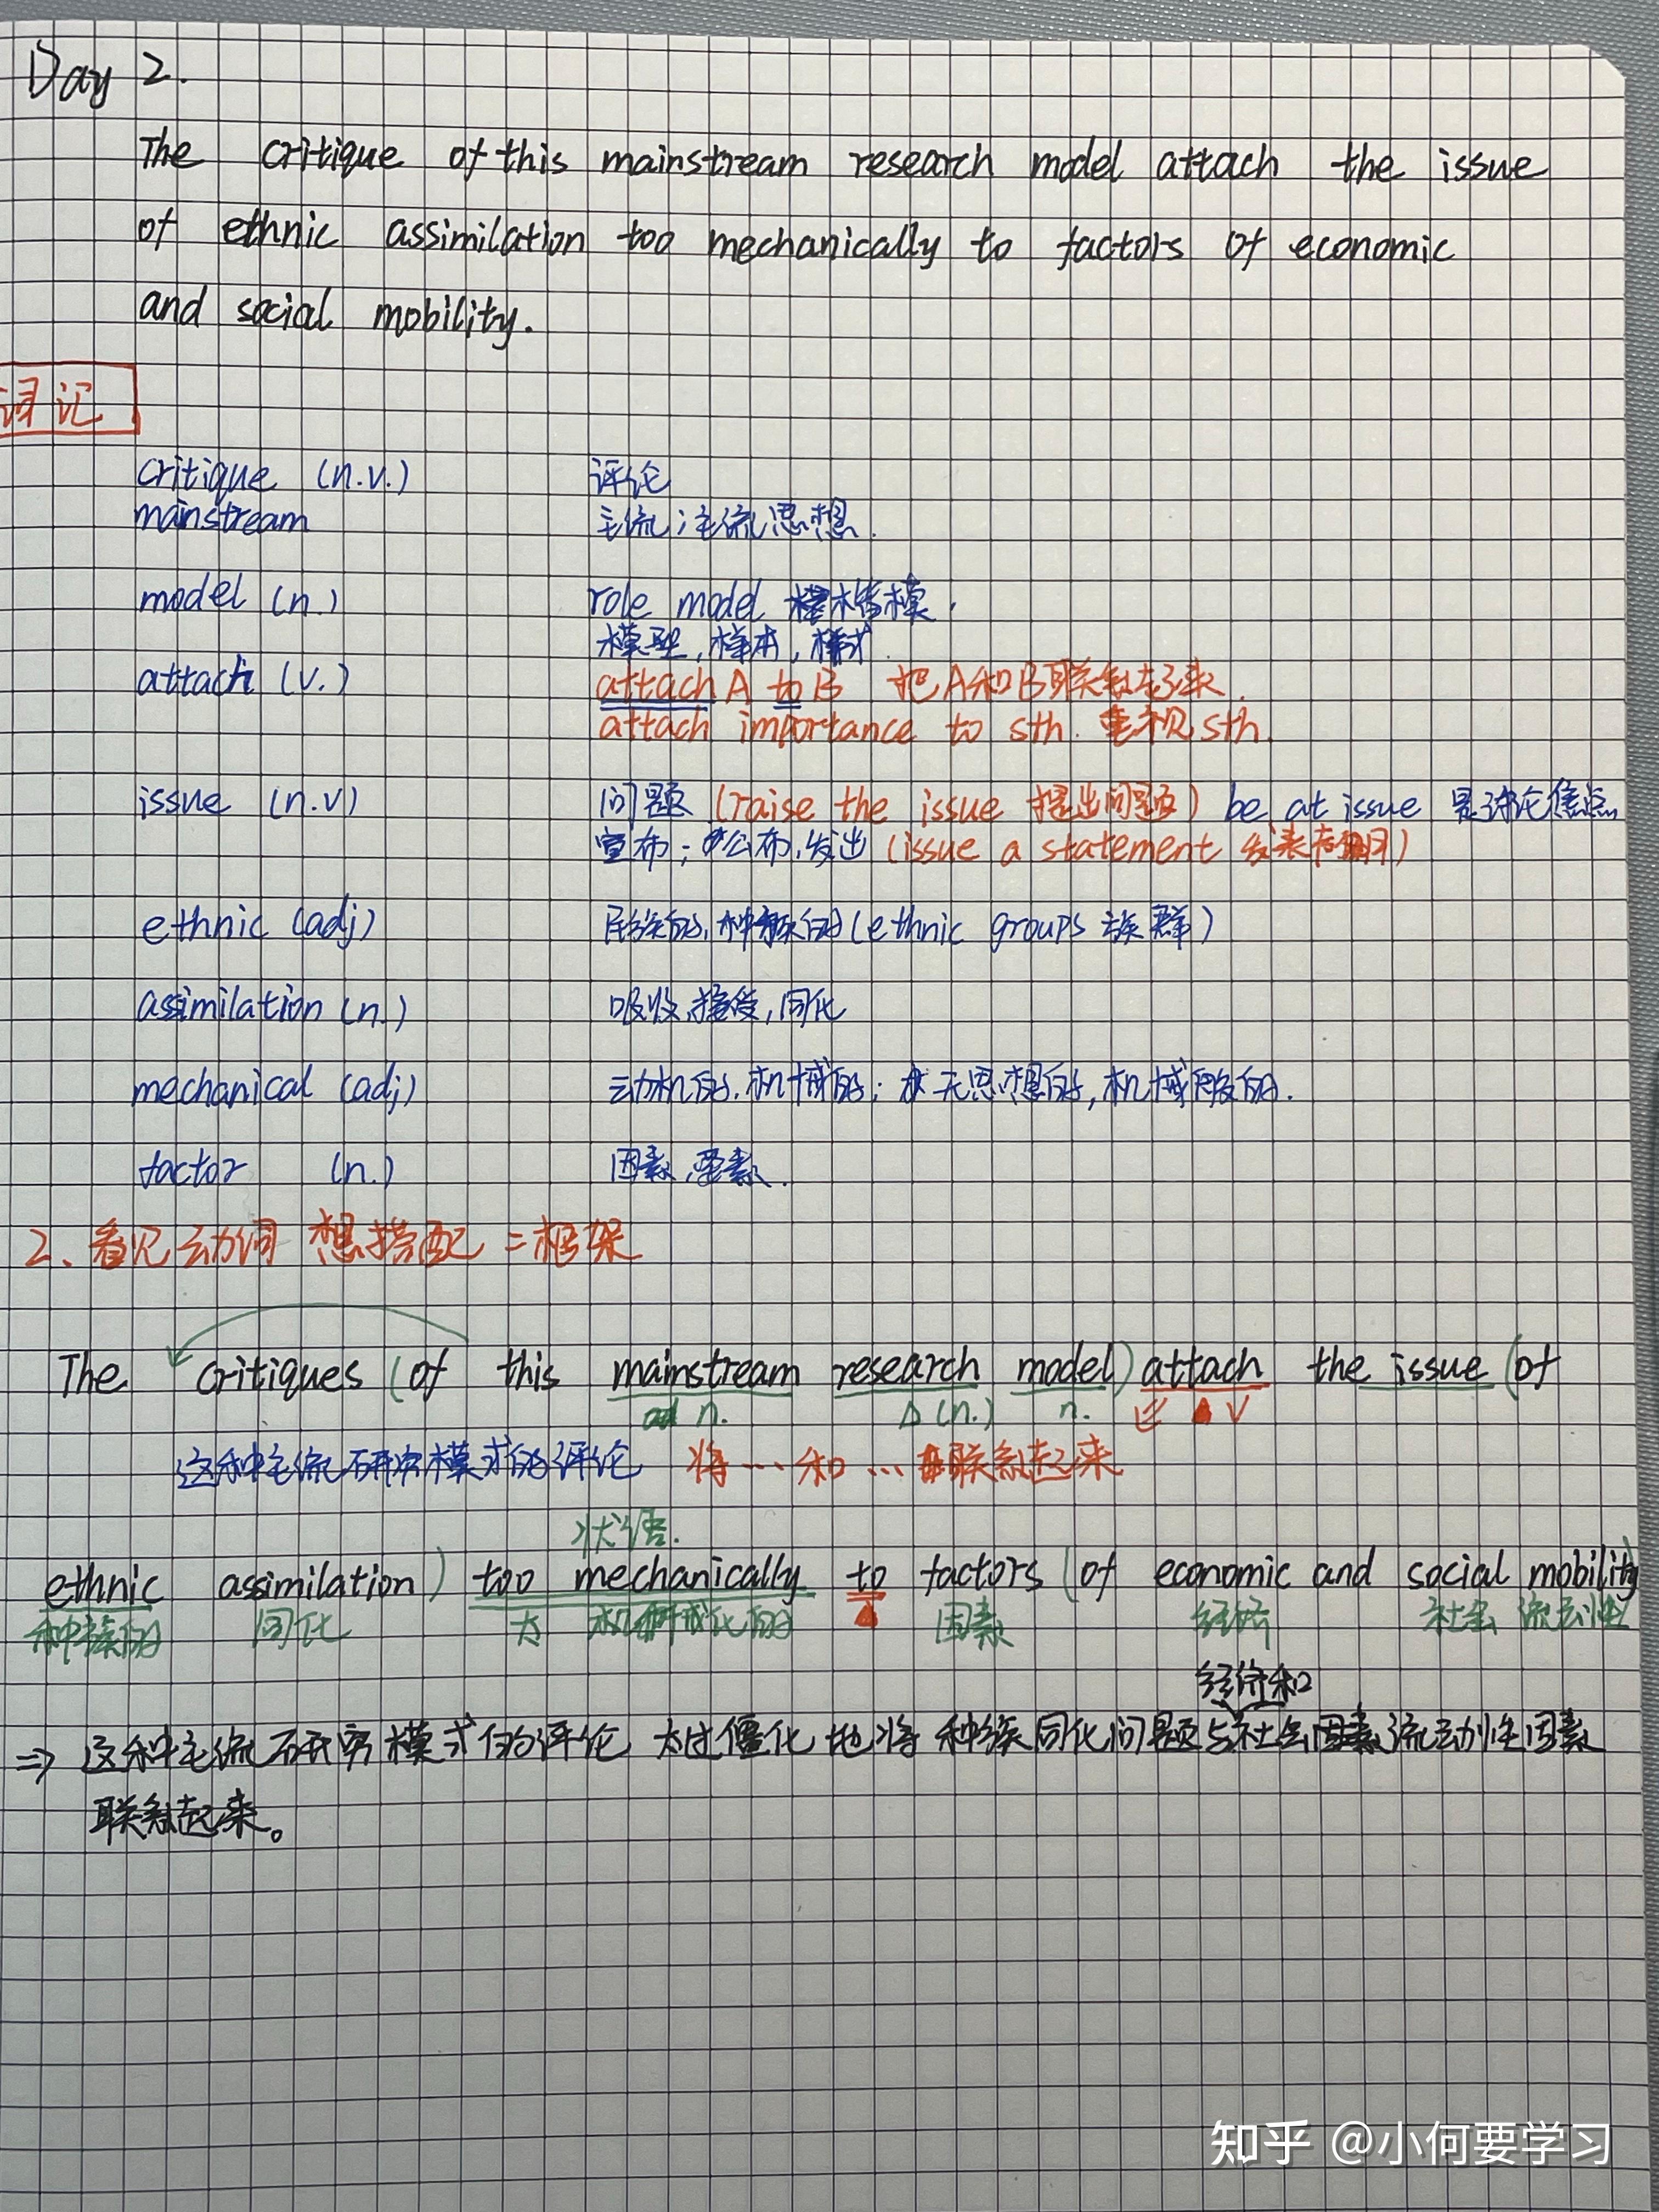 Day 2.
The critique of this mainstream research model attach the issue
of ethnic assimilation too mechanically to factors of economic
and social mobility.
词记
critique (n.v.) 评论
mainstream 主流;主流思想.
model (n.) role model 楷模.
模型,样本,样式
attach (v.) attach A to B 把A和B联系起来.
attach importance to sth. 重视sth.
issue (n.v) 问题 (raise the issue 提出问题) be at issue 是讨论焦点
宣布;公布,发出 (issue a statement 发表声明)
ethnic (adj) 民族的,种族的(ethnic groups 族群)
assimilation (n.) 吸收,接受,同化
mechanical (adj) 动机的,机械的;无思想的,机械般的.
factor (n.) 因素,要素.
2、看见动词 想搭配 = 框架
The critiques (of this mainstream research model) attach the issue (of
n. (n.) n. V
这种主流研究模式的评论 将…和…联系起来
状语.
ethnic assimilation) too mechanically to factors (of economic and social mobility
种族的 同化 太 机械化的 因素 经济 社会 流动性
经济和
⇒ 这种主流研究模式的评论 太过僵化地将种族同化问题与社会流动性因素
联系起来。
知乎 @小何要学习